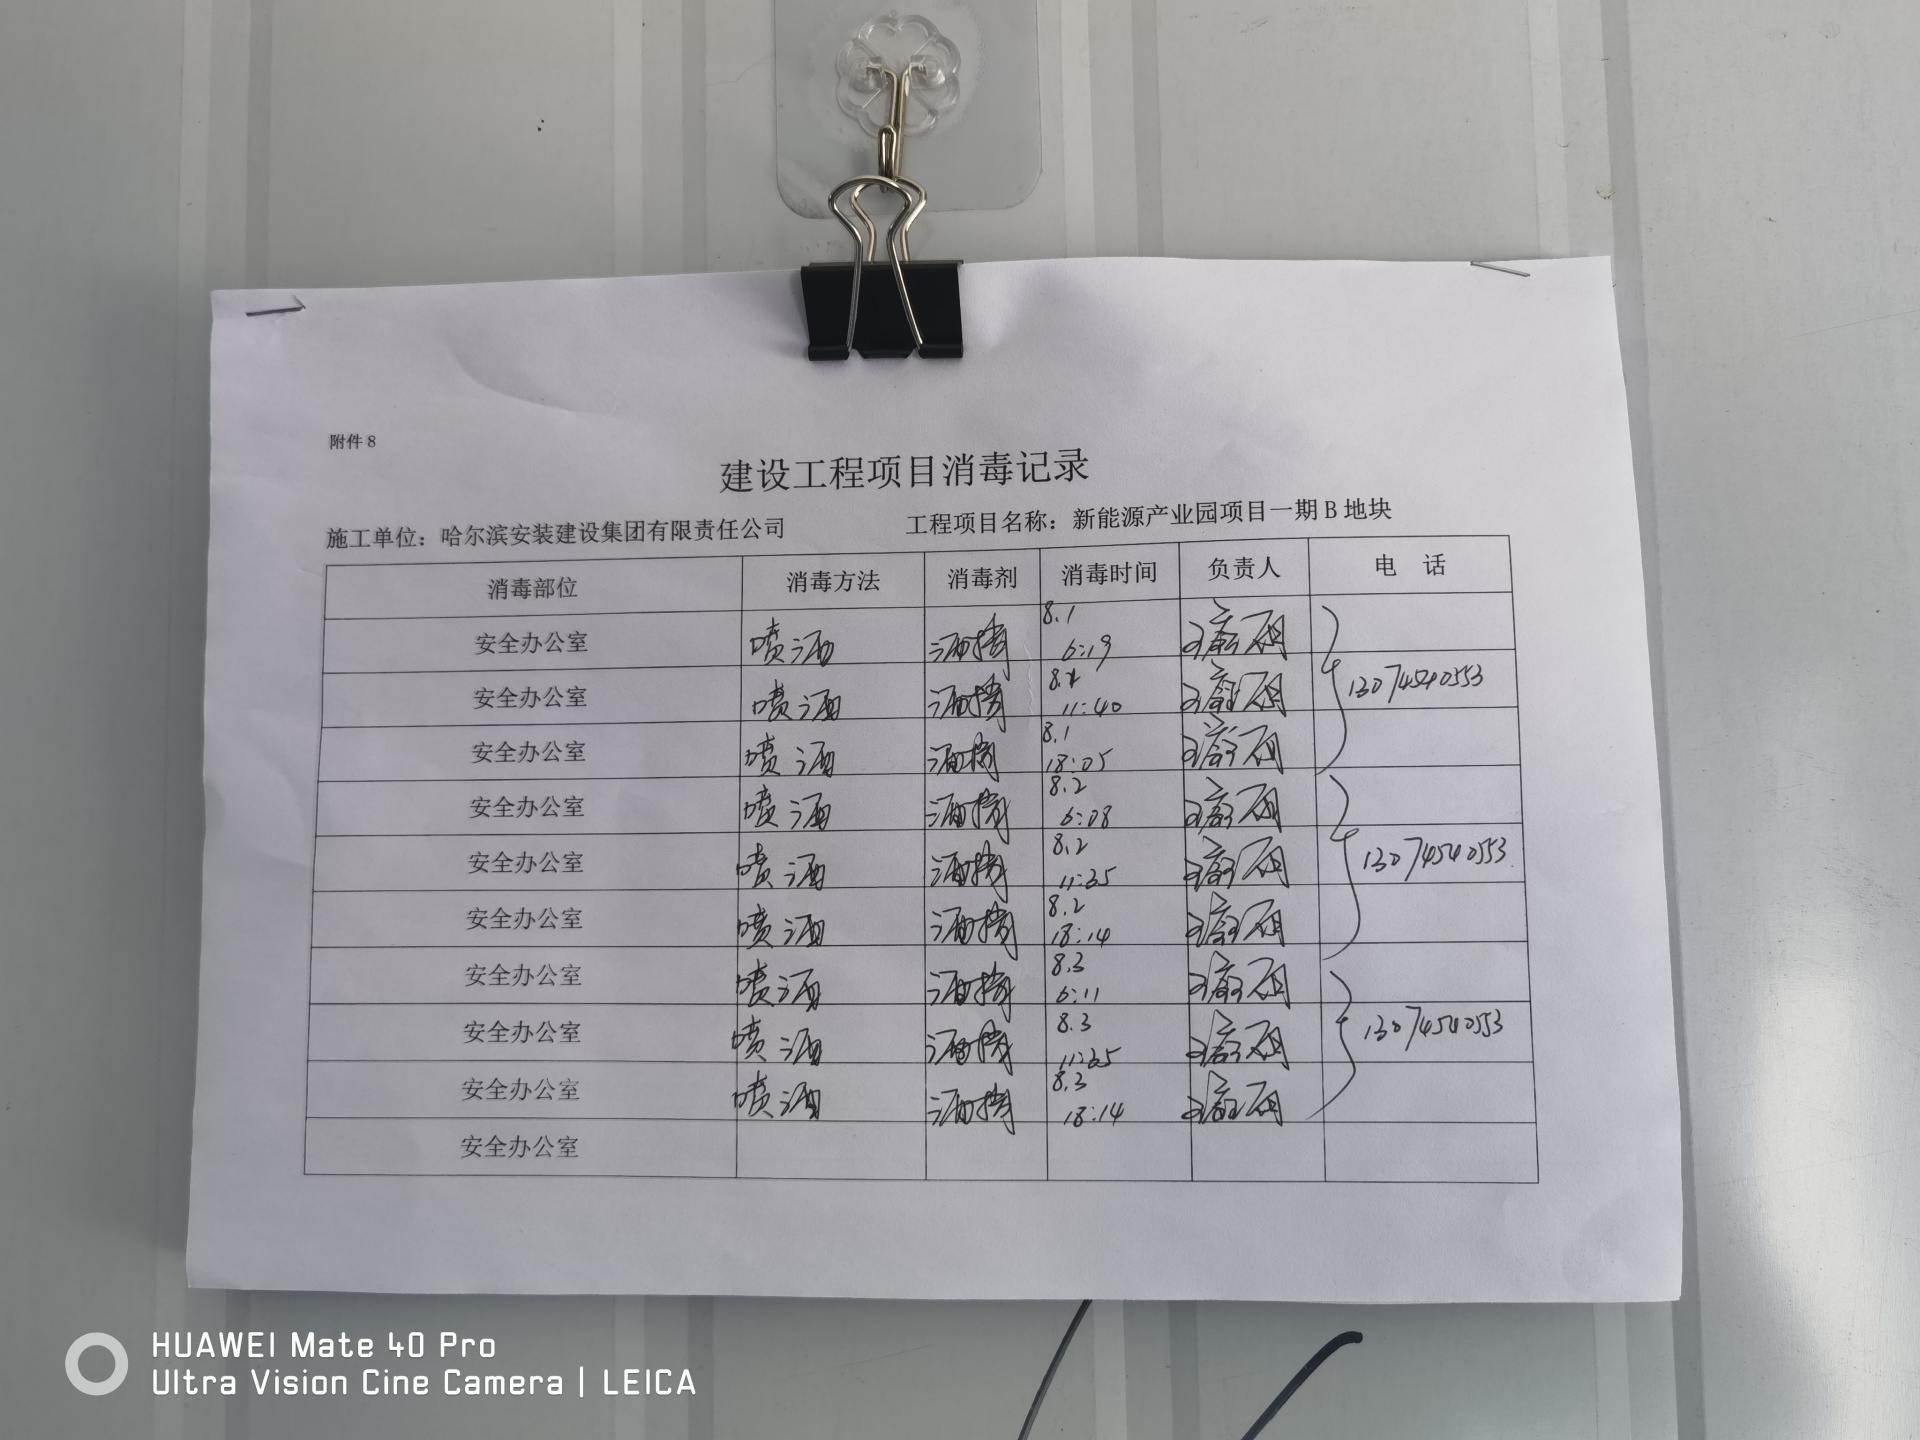 附件 8
建设工程项目消毒记录
施工单位：哈尔滨安装建设集团有限责任公司 工程项目名称：新能源产业园项目一期 B 地块
消毒部位 消毒方法 消毒剂 消毒时间 负责人 电 话
安全办公室 喷洒 酒精 8.1 6:19
安全办公室 喷洒 酒精 8.1 11:40 13074540553
安全办公室 喷洒 酒精 8.1 18:05
安全办公室 喷洒 酒精 8.2 6:08
安全办公室 喷洒 酒精 8.2 11:35 13074540553
安全办公室 喷洒 酒精 8.2 18:14
安全办公室 喷洒 酒精 8.3 6:11
安全办公室 喷洒 酒精 8.3 13074540553
安全办公室 喷洒 酒精 8.3 18:14
安全办公室
HUAWEI Mate 40 Pro
Ultra Vision Cine Camera | LEICA